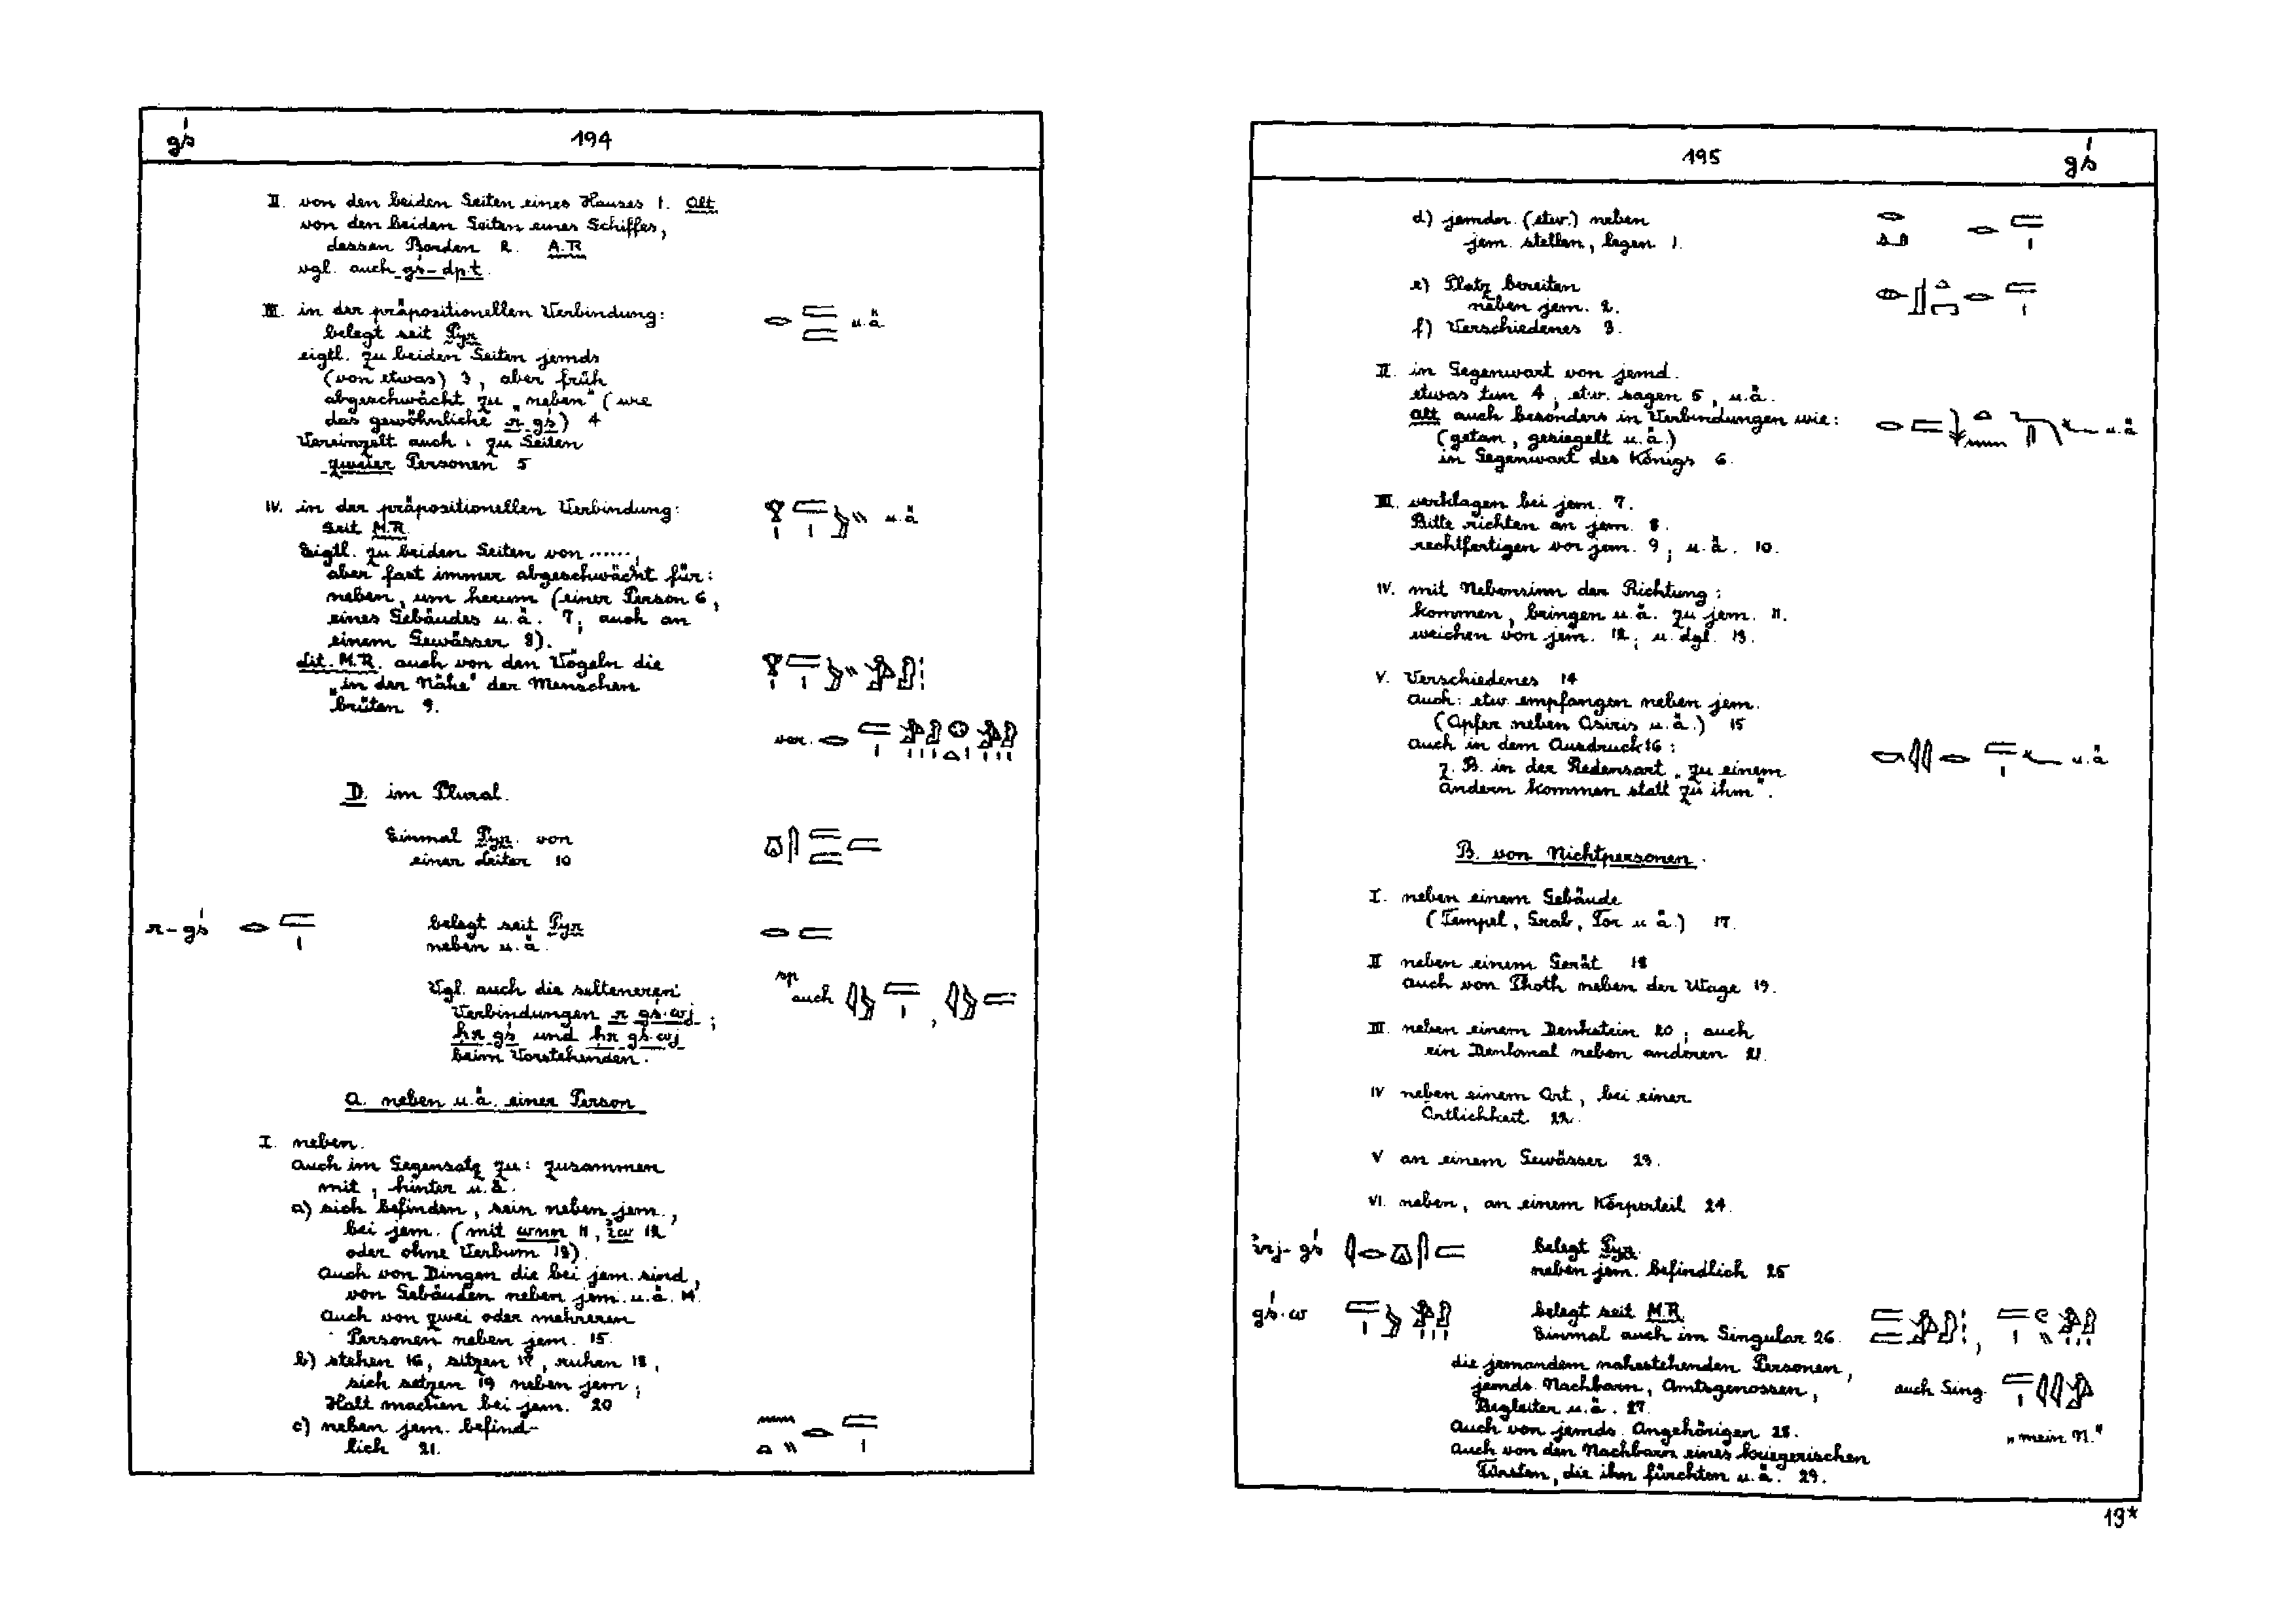 gś 194
II. von den beiden Seiten eines Hauses 1. Alt
von den beiden Seiten eines Schiffes,
dessen Borden 2. A.R.
vgl. auch gś-dp.t.
III. in der präpositionellen Verbindung: u.ä.
belegt seit Pyr.
eigtl. zu beiden Seiten jemds
(von etwas) 3, aber früh
abgeschwächt zu „neben“ (wie
das gewöhnliche r gś) 4
Vereinzelt auch: zu Seiten
zweier Personen 5
IV. in der präpositionellen Verbindung: u.ä.
Seit M.R.
Eigtl. zu beiden Seiten von ......,
aber fast immer abgeschwächt für:
neben, um herum (einer Person 6,
eines Gebäudes u.ä. 7, auch an
einem Gewässer 8).
Lit. M.R. auch von den Vögeln die
„in der Nähe“ der Menschen
brüten 9.
var.
D. im Plural.
Einmal Pyr. von
einer Leiter 10
r-gś belegt seit Pyr.
neben u.ä.
Vgl. auch die selteneren
Verbindungen r gś.wj;
ḥr gś und ḥr gś.wj
beim Vorstehenden.
sp. auch
A. neben u.ä. einer Person
I. neben.
Auch im Gegensatz zu: zusammen
mit, hinter u.ä.
a) sich befinden, sein neben jem.,
bei jem. (mit wnn 11, ı͗w 12
oder ohne Verbum 13).
Auch von Dingen die bei jem. sind,
von Gebäuden neben jem. u.ä. 14.
Auch von zwei oder mehreren
Personen neben jem. 15.
b) stehen 16, sitzen 17, ruhen 18,
sich setzen 19 neben jem;
Halt machen bei jem. 20
c) neben jem. befind-
lich 21.
195 gś
d) jemdn. (etw.) neben
jem. stellen, legen 1.
e) Platz bereiten
neben jem. 2.
f) Verschiedenes 3.
II. in Gegenwart von jemd.
etwas tun 4, etw. sagen 5, u.ä.
Alt auch besonders in Verbindungen wie: u.ä.
(getan, gesiegelt u.ä.)
in Gegenwart des Königs 6.
III. verklagen bei jem. 7.
Bitte richten an jem. 8.
rechtfertigen vor jem. 9, u.ä. 10.
IV. mit Nebensinn der Richtung:
kommen, bringen u.ä. zu jem. 11.
weichen von jem. 12; u. dgl. 13.
V. Verschiedenes 14
Auch: etw. empfangen neben jem.
(Opfer neben Osiris u.ä.) 15
Auch in dem Ausdruck 16: u.ä.
z. B. in der Redensart „zu einem
andern kommen statt zu ihm“.
B. von Nichtpersonen.
I. neben einem Gebäude
(Tempel, Grab, Tor u.ä.) 17.
II neben einem Gerät 18
auch von Thoth neben der Wage 19.
III. neben einem Denkstein 20; auch
ein Denkmal neben anderen 21.
IV neben einem Ort, bei einer
Örtlichkeit 22.
V an einem Gewässer 23.
VI. neben, an einem Körperteil 24.
ı͗rj-gś belegt Pyr.
neben jem. befindlich 25
gś.w belegt seit M.R.
Einmal auch im Singular 26.
die jemandem nahestehenden Personen,
jemds. Nachbarn, Amtsgenossen, auch Sing.
Begleiter u.ä. 27.
Auch von jemds. Angehörigen 28. „mein N.“
Auch von den Nachbarn eines kriegerischen
Fürsten, die ihn fürchten u.ä. 29.
19*